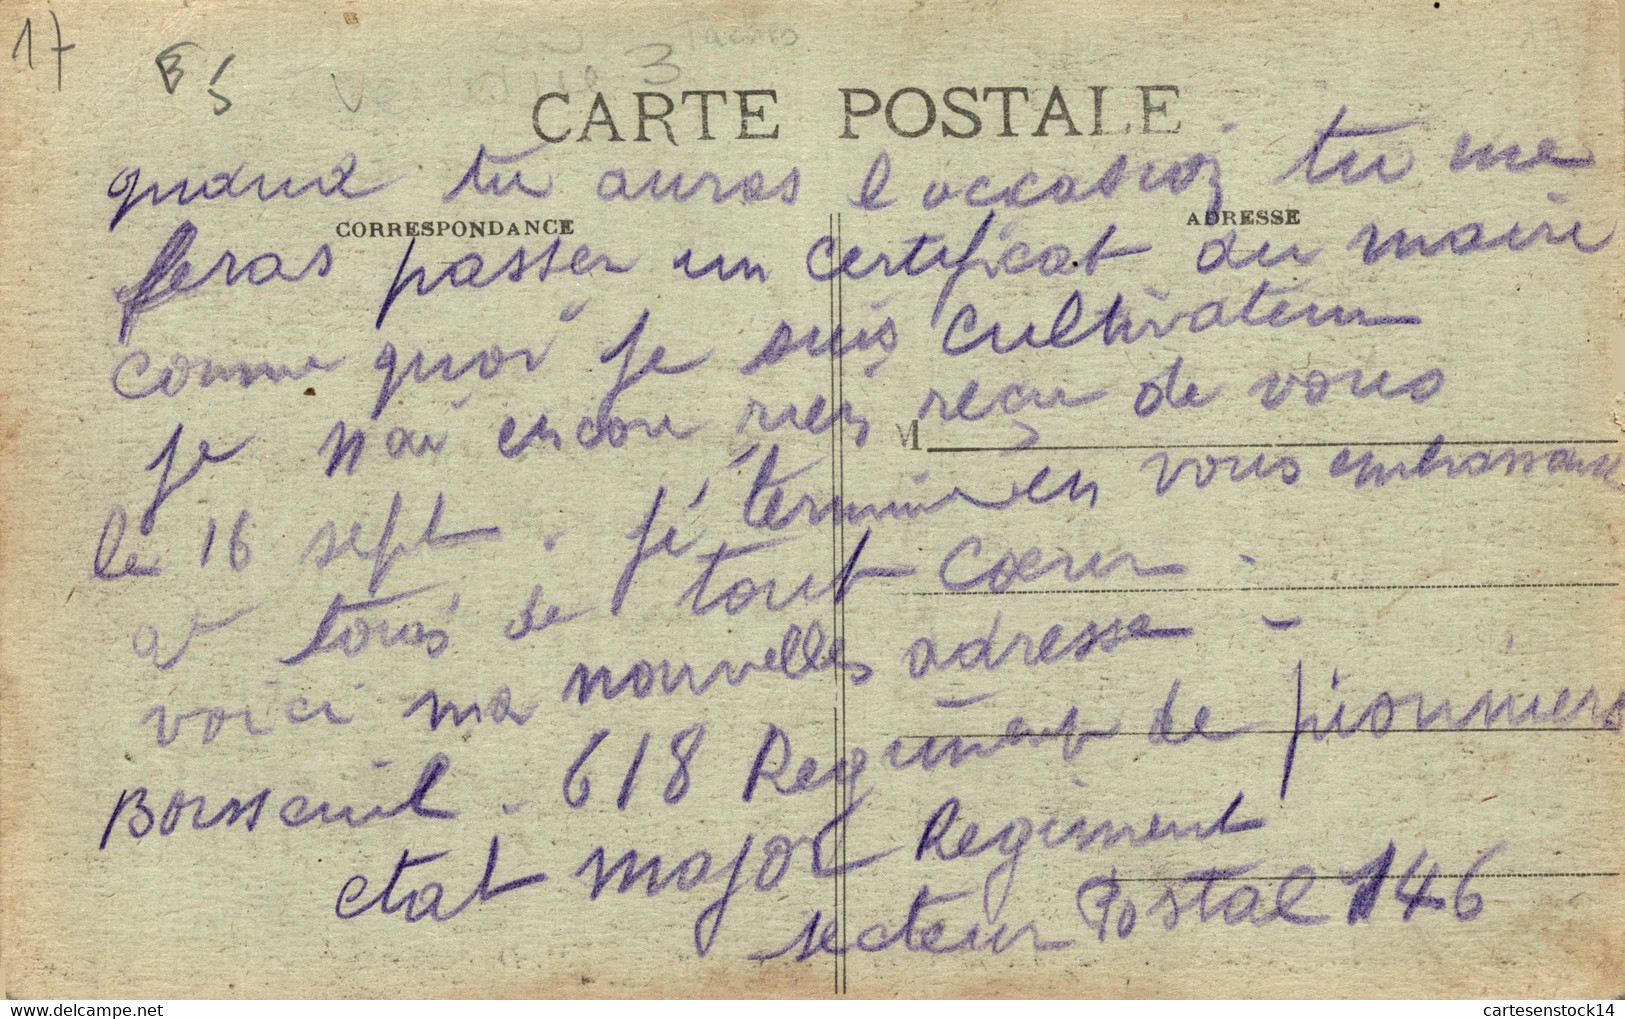 17
3
CARTE POSTALE
quand tu auras l occasion tu me
CORRESPONDANCE
ADRESSE
feras passer un certificat du maire
comme quoi je suis cultivateur
je n ai encore rien reçu de vous
M
le 16 sept. je termine en vous embrassant
tous de tout cœur.
voici ma nouvelles adresse -
618 Regiment de pionniers
etat major Regiment
secteur Postal 146
cartesenstock14